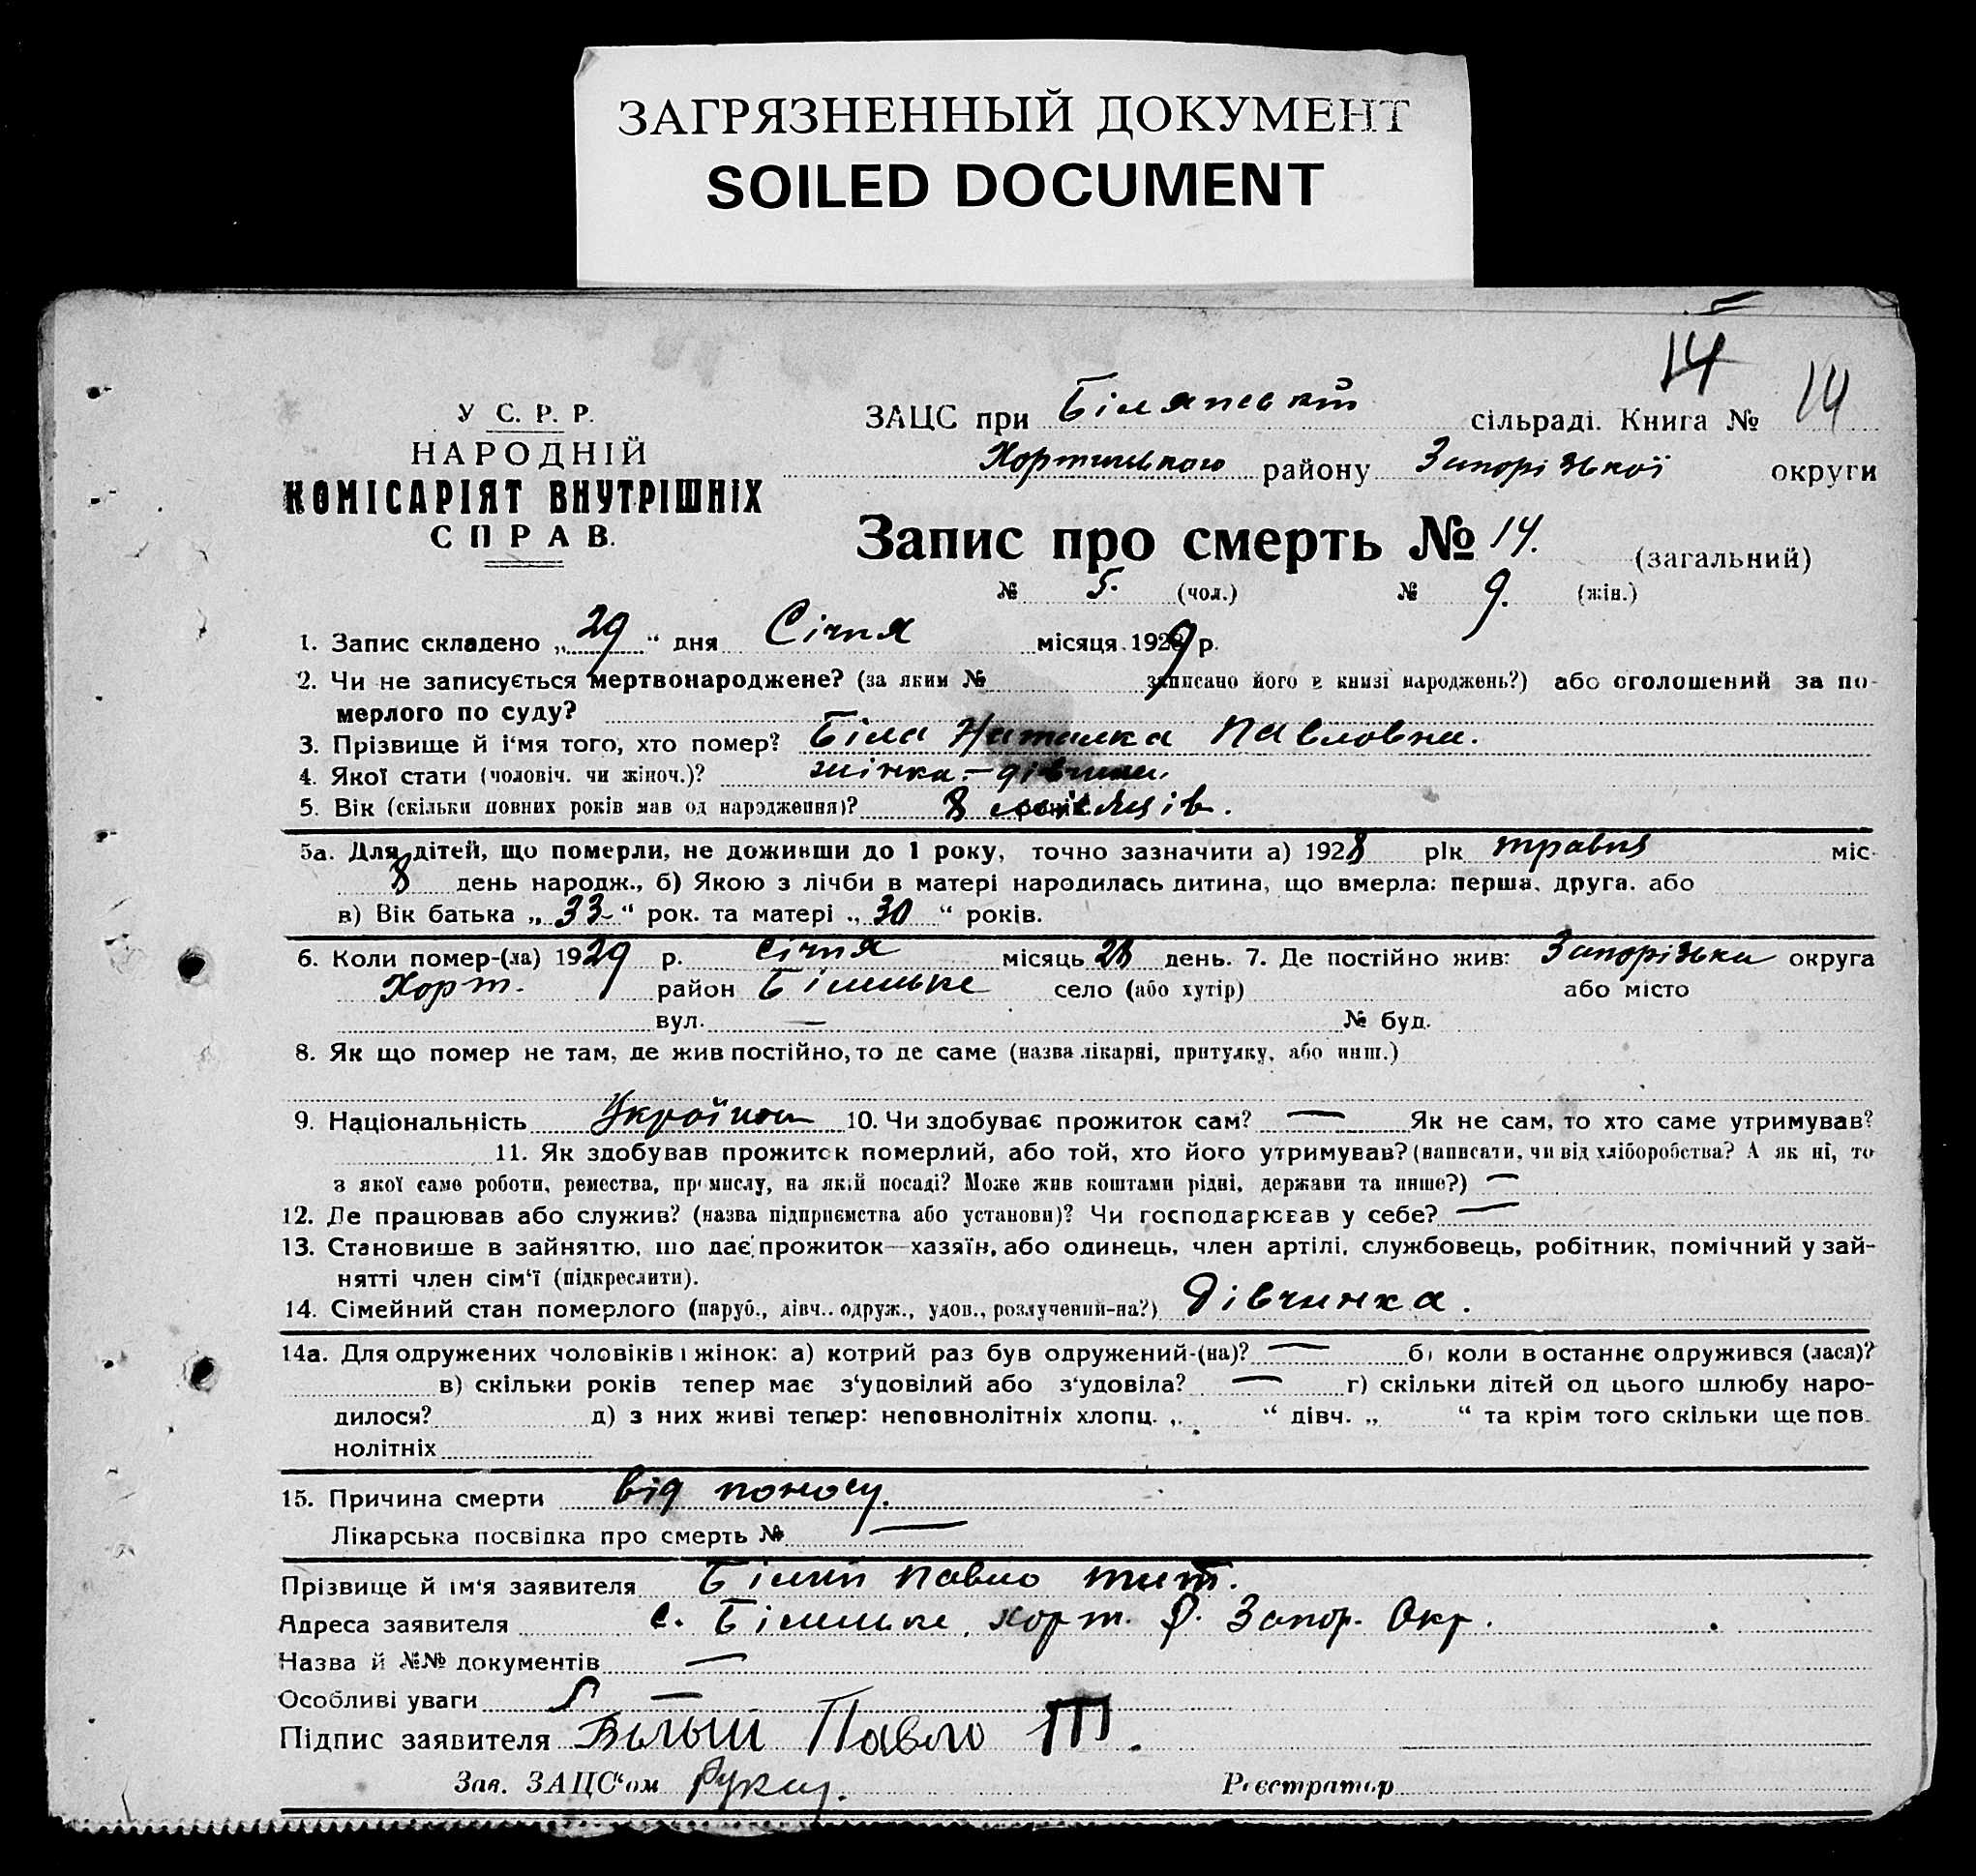 ЗАГРЯЗНЕННЫЙ ДОКУМЕНТ
SOILED DOCUMENT
14 14
У С. Р. Р.
НАРОДНІЙ
КОМІСАРІЯТ ВНУТРІШНІХ
СПРАВ.
ЗАЦС при сільраді. Книга №
Хортицького району Запорізької округи
Запис про смерть № 14. (загальний)
№ 5. (чол.) № 9. (жін.)
1. Запис складено „29“ дня Січня місяця 1929 р.
2. Чи не записується мертвонароджене? (за яким № записано його в книзі народжень?) або оголошений за по-
мерлого по суду?
3. Прізвище й і‘мя того, хто помер? Біла Наталка Павловна.
4. Якої стати (чоловіч. чи жіноч.)? жінка – дівчина.
5. Вік (скільки повних років мав од народження)? 8 місяців.
5а. Для дітей, що померли, не доживши до 1 року, точно зазначити а) 1928 рік травня міс.
8 день народж., б) Якою з лічби в матері народилась дитина, що вмерла: перша, друга. або
в) Вік батька „33“ рок. та матері „30“ років.
6. Коли помер-(ла) 1929 р. січня місяць 28 день. 7. Де постійно жив: Запорізька округа
Хорт. район село (або хутір) або місто
вул. — № буд.
8. Як що помер не там, де жив постійно, то де саме (назва лікарні, притулку, або инш.)
9. Національність 10. Чи здобуває прожиток сам? — Як не сам, то хто саме утримував?
11. Як здобував прожиток померлий, або той, хто його утримував? (написати, чи від хліборобства? А як ні, то
з якої саме роботи, ремества, промислу, на якій посаді? Може жив коштами рідні, держави та инше?) —
12. Де працював або служив? (назва підприємства або установи)? Чи господарював у себе? —
13. Становише в зайняттю, що дає прожиток—хазяїн, або одинець, член артілі, службовець, робітник, помічний у зай-
нятті член сім‘ї (підкреслити).
14. Сімейний стан померлого (паруб., дівч.. одруж., удов., розлучений-на?) Дівчинка.
14а. Для одружених чоловіків і жінок: а) котрий раз був одружений-(на)? — б) коли востаннє одружився (лася)?
в) скільки років тепер має з‘удовілий або з‘удовіла? — г) скільки дітей од цього шлюбу наро-
дилося? д) з них живі тепер: неповнолітніх хлопц. „ “ дівч. „ “ та крім того скільки ще пов-
нолітніх
15. Причина смерти від поносу.
Лікарська посвідка про смерть № —
Прізвище й ім‘я заявителя Білий Павло Тит.
Адреса заявителя с. хорт. р. Запор. Окр.
Назва й №№ документів —
Особливі уваги —
Підпис заявителя Білый Павло Т.
Зав. ЗАЦС‘ом Реєстратор